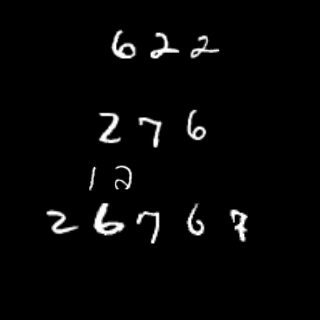 622
276
12
26767